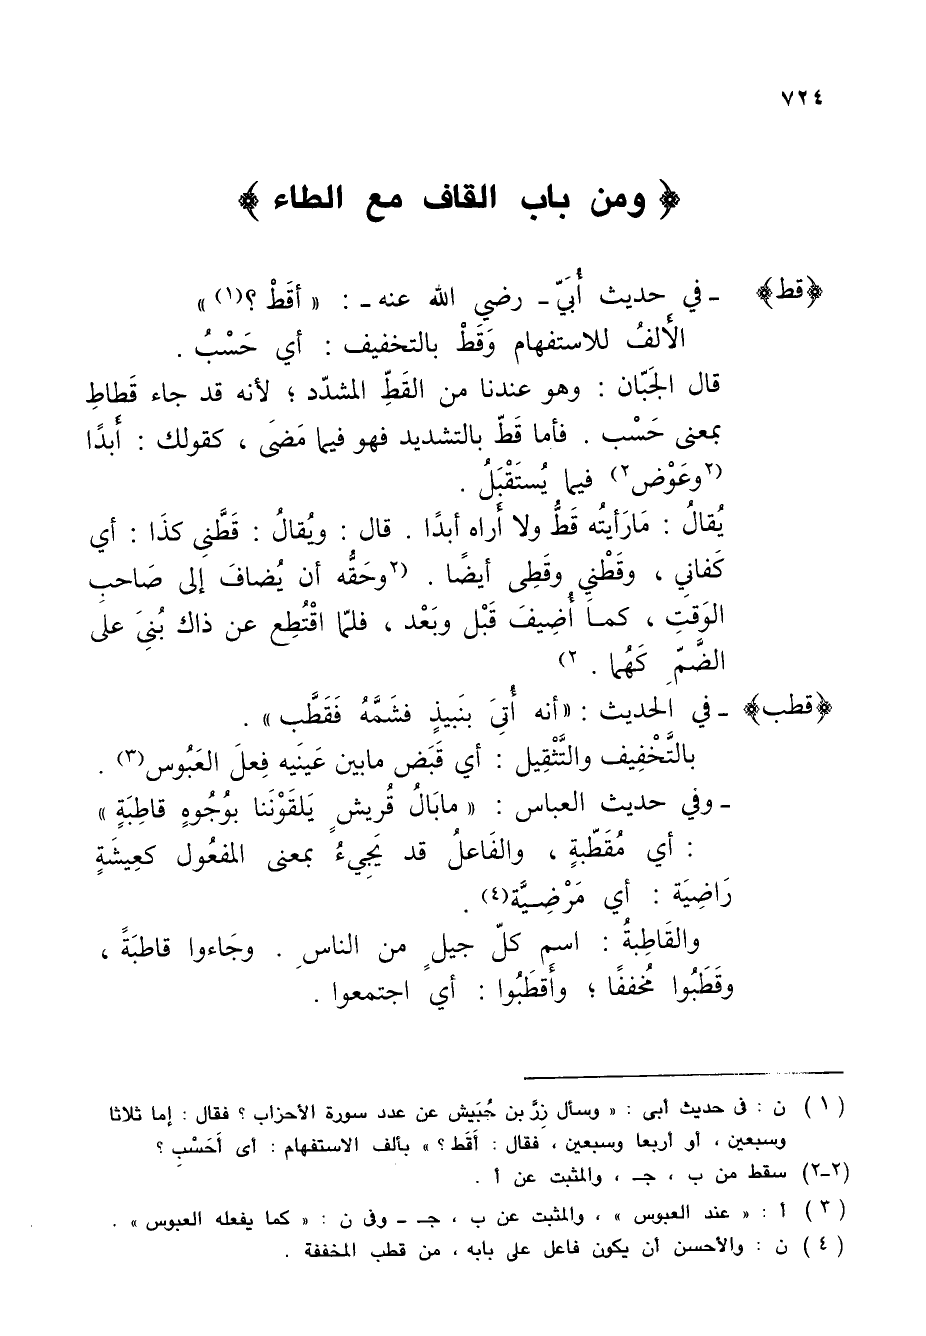 ٧٢٤
﴿ ومن باب القاف مع الطاء ﴾
﴿قط﴾ ـ في حديث أُبَيّ ـ رضي الله عنه ـ : « أقَطْ ؟(١) »
الأَلفُ للاستفهام وَقَطْ بالتخفيف : أي حَسْبُ .
قال الجَبّان : وهو عندنا من القَطِّ المشدّد ؛ لأنه قد جاء قَطاطِ
بمعنى حَسْب . فأما قَطّ بالتشديد فهو فيما مَضَى ، كقولك : أَبدًا
(٢وعَوْض٢) فيما يُستَقْبَلُ .
يُقالُ : مَارَأيتُه قَطُّ ولا أَراه أبدًا . قال : ويُقالُ : قَطَّني كذَا : أي
كَفاني ، وقَطْني وقَطِى أيضًا . (٢وحَقُّه أن يُضافَ إلى صَاحبِ
الوَقتِ ، كما أُضِيفَ قَبْل وبَعْد ، فلمّا اقْتُطِع عن ذاك بُنىَ على
الضَّمِّ كَهُما . ٢)
﴿قطب﴾ ـ في الحديث : «أنه أُتىَ بنَبيذٍ فشَمَّهُ فَقَطَّب» .
بالتَّخْفِيف والتَّثْقِيل : أي قَبَض مابين عَينَيه فِعلَ العَبُوس(٣) .
ـ وفي حديث العباس : « مابَالُ قُريشٍ يَلقَوْنَنا بوُجُوهٍ قاطِبَةٍ »
: أي مُقَطّبةٍ ، والفَاعلُ قد يَجِيءُ بمعنى المفعُول كعِيشَةٍ
رَاضِيَة : أي مَرْضِيَّة(٤) .
والقَاطِبةُ : اسم كلّ جيلٍ من الناسِ . وجَاءوا قاطبَةً ،
وقَطَبُوا مُخففًا ؛ وأَقطَبُوا : أي اجتمعوا .
(١) ن : فى حديث أبى : « وسأل زِرَّ بن حُبَيش عن عدد سورة الأحزاب ؟ فقال : إما ثلاثا
وسبعين ، أو أربعا وسبعين ، فقال : أَقَط ؟ » بألف الاستفهام : أى أَحَسْبِ ؟
(٢-٢) سقط من ب ، جـ ، والمثبت عن أ .
(٣) أ : « عند العبوس » ، والمثبت عن ب ، جـ ـ وفى ن : « كما يفعله العبوس » .
(٤) ن : والأحسن أن يكون فاعل على بابه ، من قطب المخففة .